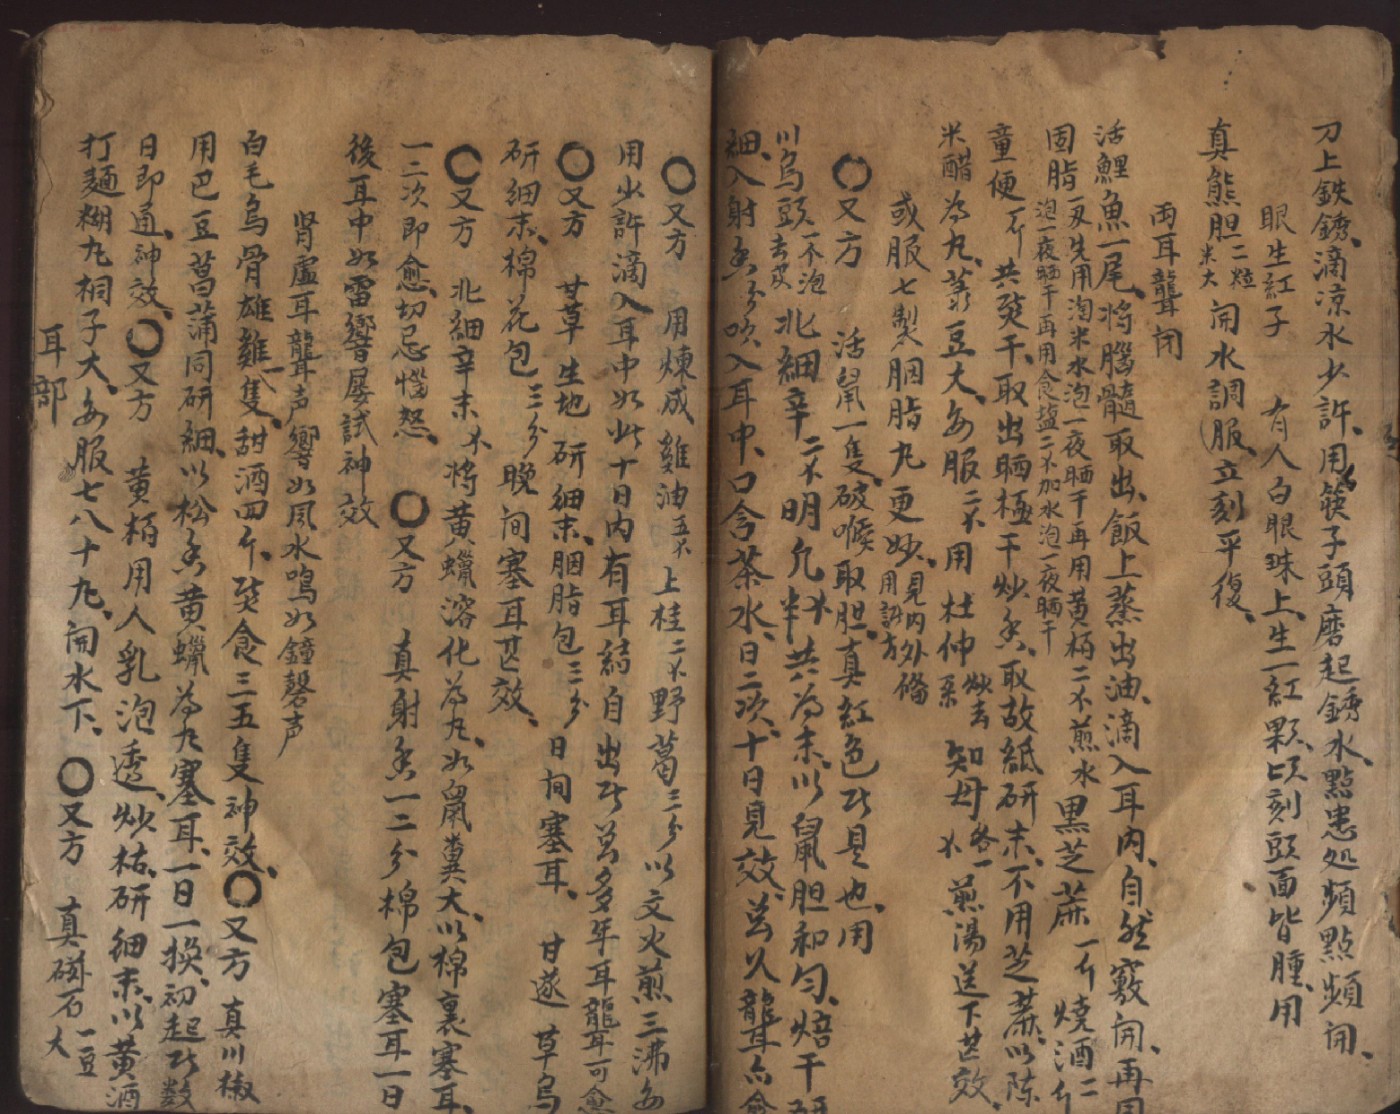 刀上鉄銹、滴凉水少許、用筷子頭磨起銹水、點患処頻點頻開、
眼生紅子 有人白眼珠上、生一紅顆、頃刻頭面皆腫、用
真熊胆二粒米大 開水調服、立刻平復、
両耳聾闭
活鯉魚一尾、将腦髓取出、飯上蒸出油、滴入耳内、自然竅開、再用
固脂一刄先用淘米水泡一夜晒干再用黄栢二不煎水
泡一夜晒干再用食塩二不加水泡一夜晒干 黒芝蔴一斤 燒酒二斤
童便一斤 共煲干、取出晒極干炒香、取故紙研末、不用芝蔴、以陈
米醋為丸、菉豆大、每服二不用杜仲炒去糸 知母各一不 煎湯送下甚效、
或服七製胭脂丸更妙、見内外備用訣方
又方 活鼠一隻、破喉取胆、真紅色此是也、用
川烏頭一不泡去皮 北細辛二不 明凢半不 共為末、以鼠胆和匀、焙干研
細、入射香分 吹入耳中、口含茶水、日二次、十日見效、並久聾耳亦愈
又方 用煉成雞油五不 上桂二不 野葛三分 以文火煎三沸每
用少許滴入耳中如此十日内有耳結自出此並多年耳聾可愈
又方 甘草 生地 研細末、胭脂包三分 日间塞耳、 甘遂 草烏
研細末、棉花包三分 晚间塞耳甚效、
又方 北細辛末不 将黄蠟溶化為丸、如鼠糞大、以棉裹塞耳、
一二次即愈、切忌惱怒、 又方 真射香一二分棉包塞耳一日
後耳中如雷響屢試神效
肾虛耳聾声響如風水鳴如鐘磬声
白毛烏骨雄雞一隻、甜酒四斤、煲食三五隻神效、 又方 真川椒
用巴豆菖蒲同研細、以松香黄蠟為丸塞耳、一日一換、初起此数
日即通、神效、 又方 黄栢用人乳泡透、炒枯、研細末、以黄酒
打麵糊丸桐子大、每服七八十丸、開水下、 又方 真磁石一豆大
耳部